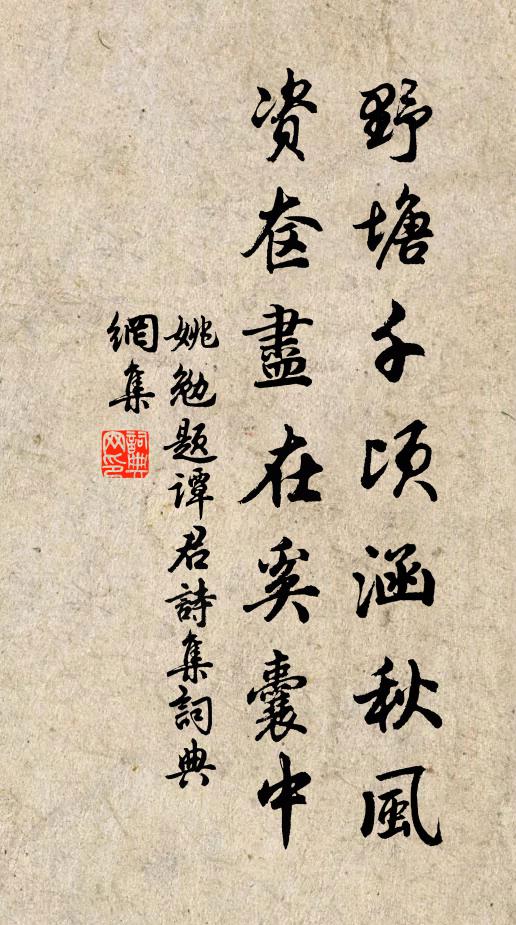 野塘千頃涵秋風
资奁盡在奚囊中
姚勉题谭君詩集詞典
網集
詞典
网印